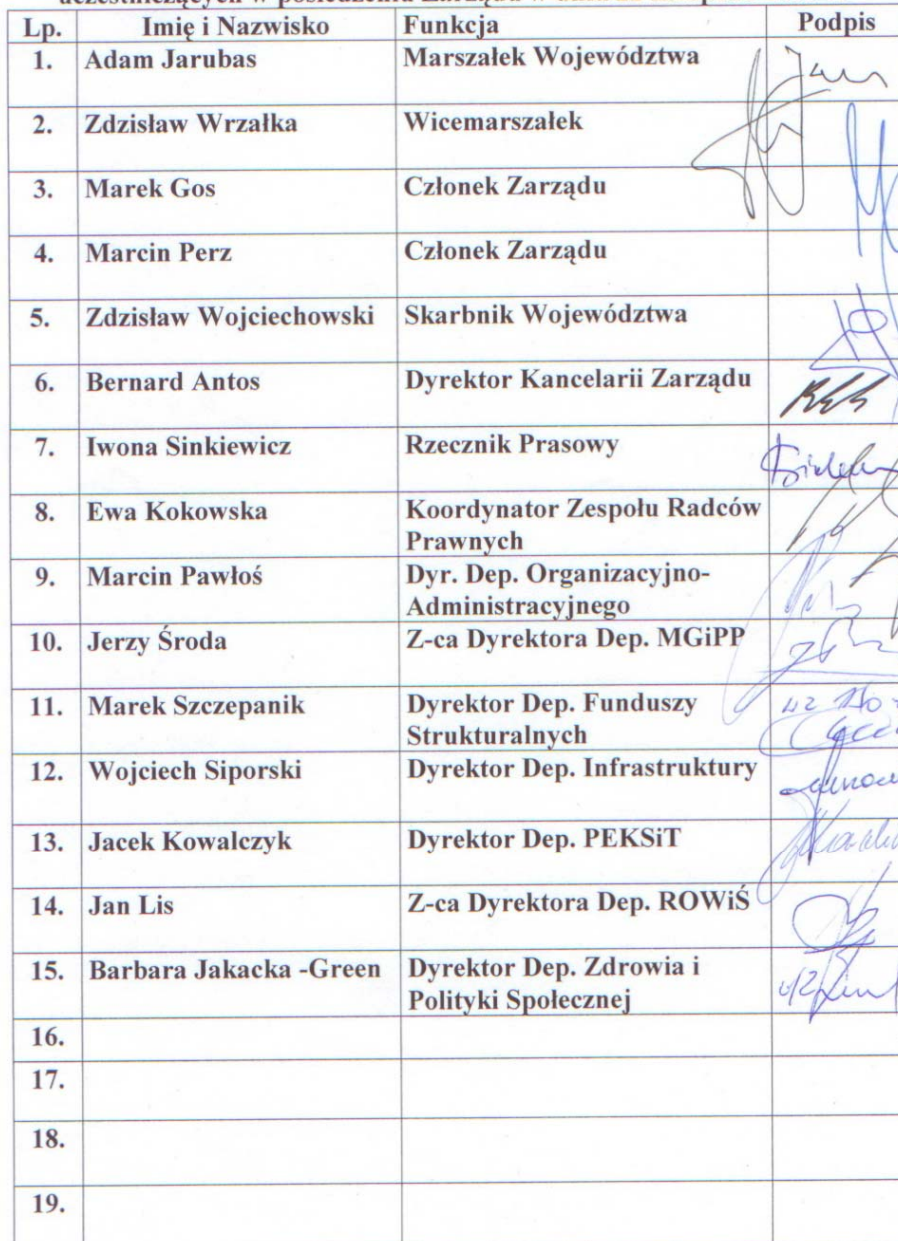 uczestniczących w posiedzeniu Zarządu w dniu
Lp. Imię i Nazwisko Funkcja Podpis
1. Adam Jarubas Marszałek Województwa
2. Zdzisław Wrzałka Wicemarszałek
3. Marek Gos Członek Zarządu
4. Marcin Perz Członek Zarządu
5. Zdzisław Wojciechowski Skarbnik Województwa
6. Bernard Antos Dyrektor Kancelarii Zarządu
7. Iwona Sinkiewicz Rzecznik Prasowy
8. Ewa Kokowska Koordynator Zespołu Radców
Prawnych
9. Marcin Pawłoś Dyr. Dep. Organizacyjno-
Administracyjnego
10. Jerzy Środa Z-ca Dyrektora Dep. MGiPP
11. Marek Szczepanik Dyrektor Dep. Funduszy
Strukturalnych
12. Wojciech Siporski Dyrektor Dep. Infrastruktury
13. Jacek Kowalczyk Dyrektor Dep. PEKSiT
14. Jan Lis Z-ca Dyrektora Dep. ROWiŚ
15. Barbara Jakacka -Green Dyrektor Dep. Zdrowia i
Polityki Społecznej
16.
17.
18.
19.